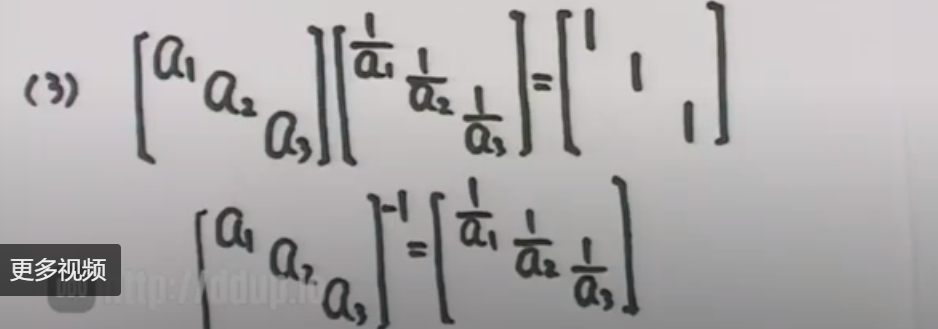 (3) [a₁ a₂ a₃][1/a₁ 1/a₂ 1/a₃]=[1 1 1]
[a₁ a₂ a₃]⁻¹=[1/a₁ 1/a₂ 1/a₃]
更多视频
http://ddup.